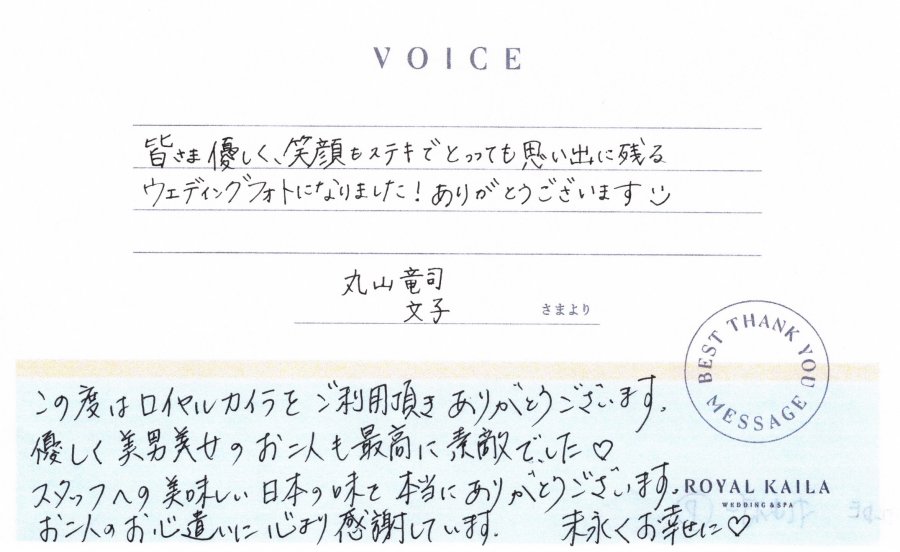 VOICE
皆さま優しく、笑顔もステキでとっても思い出に残る
ウェディングフォトになりました！ありがとうございます
丸山竜司
文子
さまより
BEST THANK YOU MESSAGE
この度はロイヤルカイラをご利用頂きありがとうございます。
優しく美男美女のお二人も最高に素敵でした♡
スタッフへの美味しい日本の味を本当にありがとうございます。
ROYAL KAILA
WEDDING & SPA
お二人のお心遣いに心より感謝しています。 末永くお幸せに♡